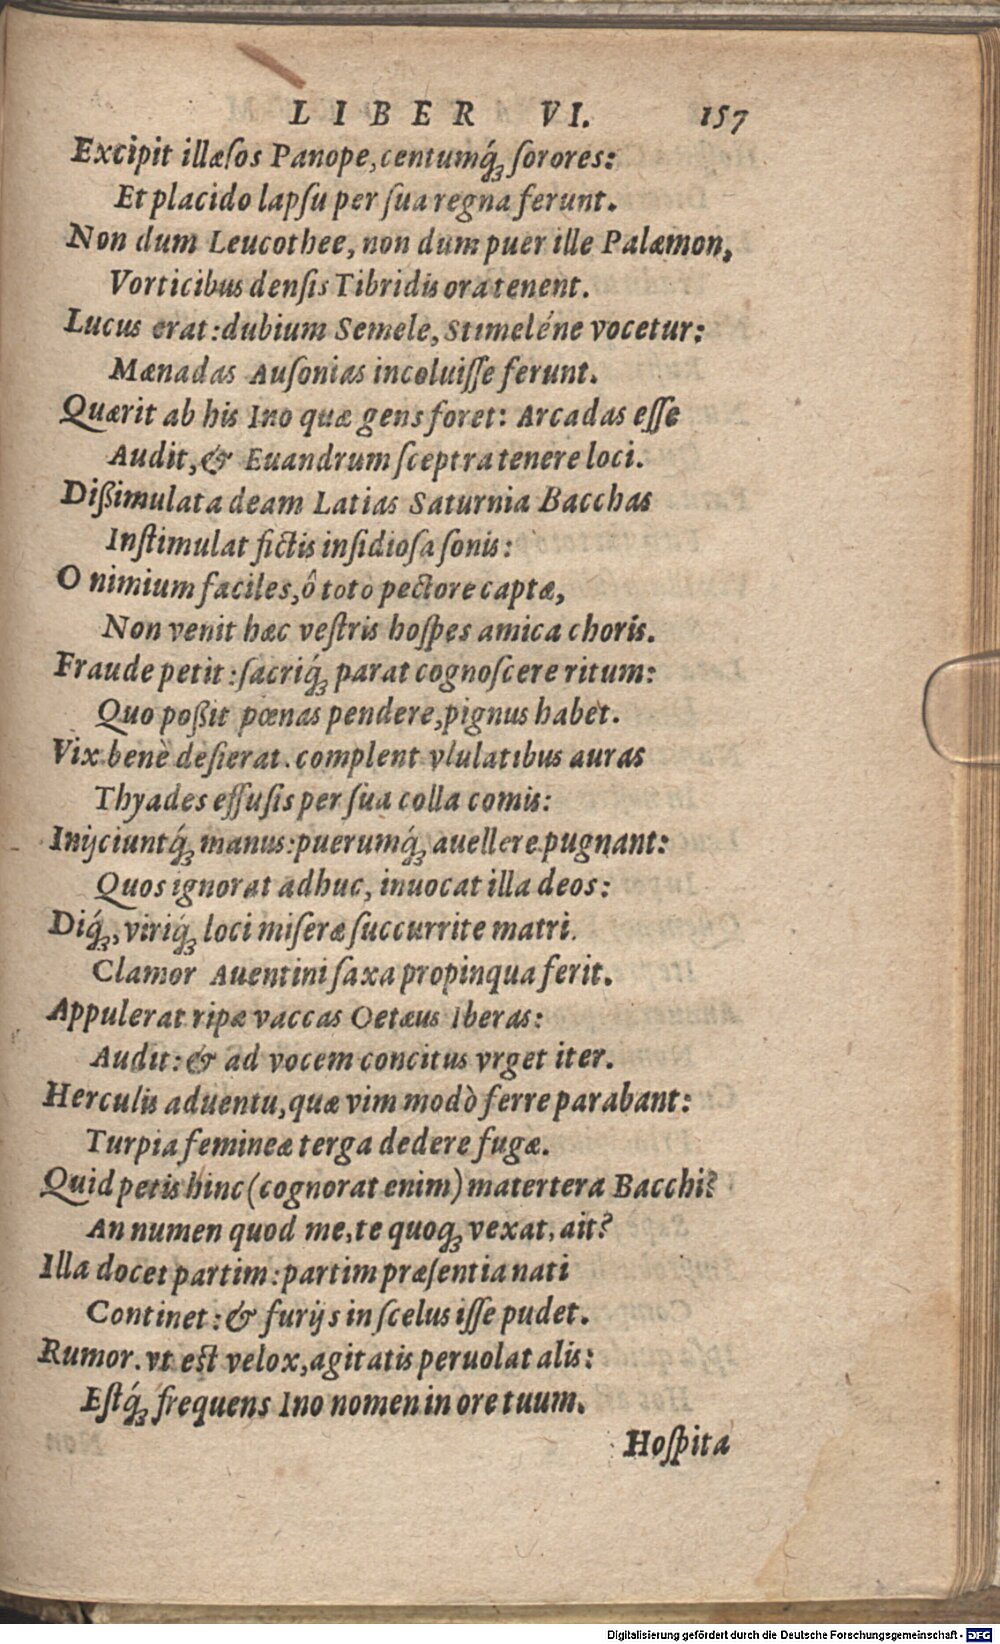 LIBER VI. 157
Excipit illæſos Panope, centumq́; ſorores:
Et placido lapſu per ſua regna ferunt.
Non dum Leucothee, non dum puer ille Palæmon,
Vorticibus denſis Tibridis ora tenent.
Lucus erat: dubium Semele, Stimeléne vocetur:
Mænadas Auſonias incoluiſſe ferunt.
Quærit ab his Ino quæ gens foret: Arcadas eſſe
Audit, & Euandrum ſceptra tenere loci.
Dißimulata deam Latias Saturnia Bacchas
Inſtimulat fictis inſidioſa ſonis:
O nimium faciles, ô toto pectore captæ,
Non venit hæc veſtris hoſpes amica choris.
Fraude petit: ſacriq́; parat cognoſcere ritum:
Quo poßit pœnas pendere, pignus habet.
Vix benè deſierat. complent vlulatibus auras
Thyades effuſis per ſua colla comis:
Inijciuntq́; manus: puerumq́; auellere pugnant:
Quos ignorat adhuc, inuocat illa deos:
Diq́;, viriq́; loci miſeræ ſuccurrite matri.
Clamor Auentini ſaxa propinqua ferit.
Appulerat ripæ vaccas Oetæus Iberas:
Audit: & ad vocem concitus vrget iter.
Herculis aduentu, quæ vim modò ferre parabant:
Turpia femineæ terga dedere fugæ.
Quid petis hinc (cognorat enim) matertera Bacchi?
An numen quod me, te quoq; vexat, ait?
Illa docet partim: partim præſentia nati
Continet: & furijs in ſcelus iſſe pudet.
Rumor. vt eſt velox, agitatis peruolat alis:
Eſtq́; frequens Ino nomen in ore tuum.
Hoſpita
Digitalisierung gefördert durch die Deutsche Forschungsgemeinschaft - DFG